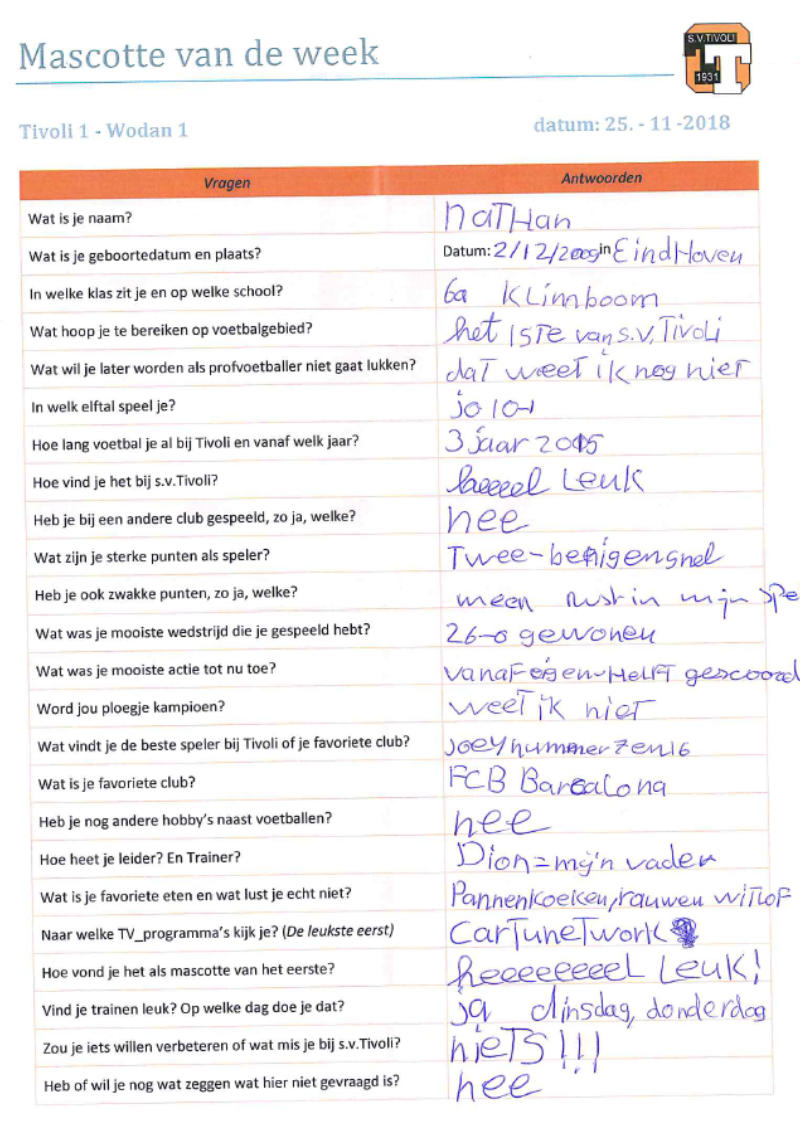 Mascotte van de week
S.V.TIVOLI
1931
Tivoli 1 - Wodan 1 datum: 25. - 11 -2018
Vragen Antwoorden
Wat is je naam? naTHan
Wat is je geboortedatum en plaats? Datum: 2/12/2009 in EindHoven
In welke klas zit je en op welke school? 6a KLimboom
Wat hoop je te bereiken op voetbalgebied? het 1STe van S.V. Tivoli
Wat wil je later worden als profvoetballer niet gaat lukken? daT weet ik nog nieT
In welk elftal speel je? jo 10-1
Hoe lang voetbal je al bij Tivoli en vanaf welk jaar? 3 jaar 2015
Hoe vind je het bij s.v.Tivoli? heeeel Leuk
Heb je bij een andere club gespeeld, zo ja, welke? nee
Wat zijn je sterke punten als speler? Twee-benigensnel
Heb je ook zwakke punten, zo ja, welke? meer rust in mijn spe
Wat was je mooiste wedstrijd die je gespeeld hebt? 26-0 gewonen
Wat was je mooiste actie tot nu toe? vanaf eigen-HelfT gescoord
Word jou ploegje kampioen? weeT ik nieT
Wat vindt je de beste speler bij Tivoli of je favoriete club? joey nummer 7 en 16
Wat is je favoriete club? FCB Barcalona
Heb je nog andere hobby's naast voetballen? nee
Hoe heet je leider? En Trainer? Dion=mij'n vader
Wat is je favoriete eten en wat lust je echt niet? Pannenkoeken, rauwen wiTLoF
Naar welke TV_programma's kijk je? (De leukste eerst) CarTuneTwork
Hoe vond je het als mascotte van het eerste? heeeeeeeel Leuk!
Vind je trainen leuk? Op welke dag doe je dat? ja dinsdag, donderdag
Zou je iets willen verbeteren of wat mis je bij s.v.Tivoli? nieTS!!!
Heb of wil je nog wat zeggen wat hier niet gevraagd is? nee